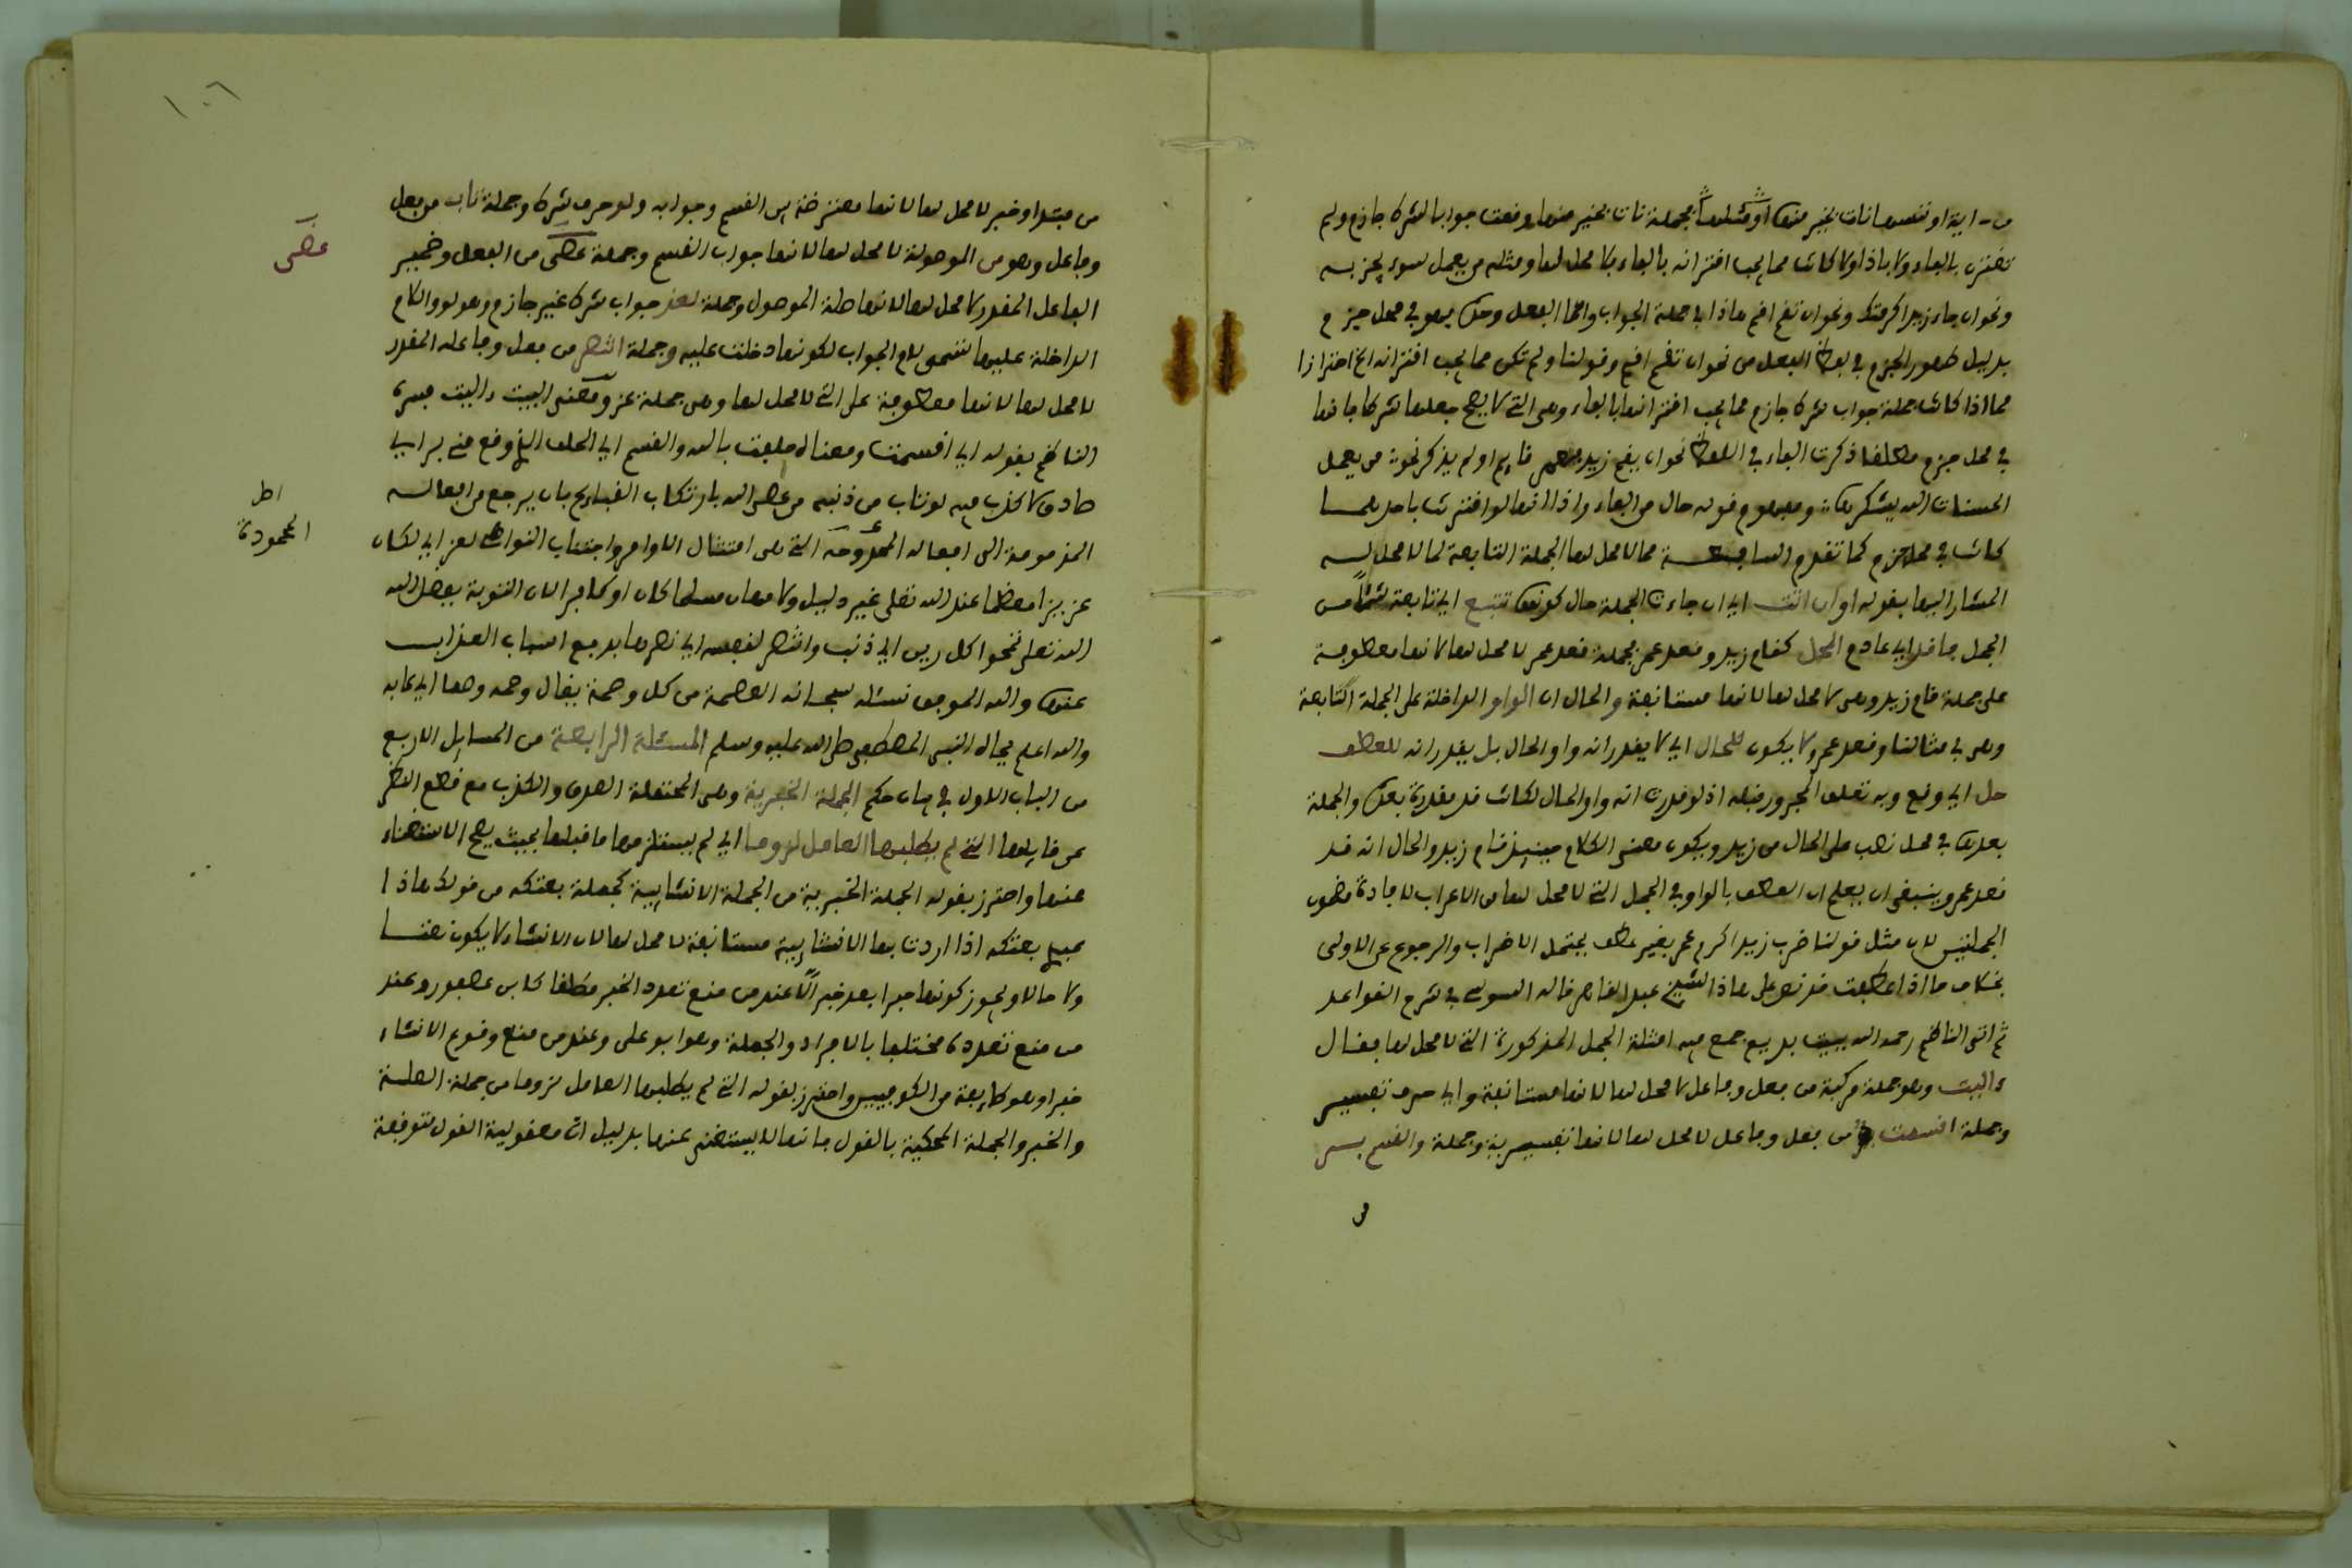 من - اية او ننسها نات بخير منها او مثلها فجملة نات بخير منها وقعت جوابا لشرط جازم ولم
تقترن بالفاء ولا باذا ولا كانت مما يجب اقترانه بالفاء فلا محل لها ومثله من يعمل سوء يجز به
ونحو ان جاء زيد اكرمتك ونحو ان تقم اقم هاذا في جملة الجواب واما الفعل وحده فهو في محل جزم
بدليل ظهور الجزم في لفظ الفعل من نحو ان تقم اقم وقولنا ولم تكن مما يجب اقترانه الخ احترازا
مما اذا كانت جملة جواب شرط جازم مما يجب اقترانها بالفاء وهي التي لا يصح جعلها شرطا فانها
في محل جزم مطلقا ذكرت الفاء في اللفظ نحو ان يقم زيد فعمر قايم او لم يذكر نحو من يفعل
الحسنات الله يشكرها ومفهوم قوله خال من الفاء واذا انها لو اقترنت باحدهما
كانت في محل جزم كما تقدم السابعة مما لا محل لها الجملة التابعة لما لا محل له
المشار اليها بقوله او ان اتت اي ان جاءت الجملة حال كونها تتبع اي تابعة شيئا من
الجمل فاقد اي عادم المحل كقام زيد وقعد عمر فجملة قعد عمر لا محل لها لانها معطوفة
على جملة قام زيد وهي لا محل لها لانها مستانفة والحال ان الواو الداخلة على الجملة التابعة
وهي في مثالنا وقعد عمر لا يكون للحال اي لا يقدر انه واو الحال بل يقدر انه للعطف
حل اي وقع وبه تعلق المجرور قبله اذ لو قدرت انه واو الحال لكانت قد مقدرة بعدها والجملة
بعدها في محل نصب على الحال من زيد ويكون معنى الكلام حينيذ قام زيد والحال انه قد
قعد عمر وينبغي ان يعلم ان العطف بالواو في الجمل التي لا محل لها من الاعراب لافادة مضمون
الجملتين لان مثل قولنا ضرب زيد اكرم عمر بغير عطف يحتمل الاضراب والرجوع عن الاولى
بخلاف ما اذا عطفت قد نص على هاذا الشيخ عبد القاهر قاله السوسي في شرح القواعد
ثم اتى الناظم رحمه الله ببيت بديع جمع فيه امثلة الجمل المذكورة التي لا محل لها فقال
واليت وهو جملة مركبة من فعل وفاعل لا محل لها لانها مستانفة واي حرف تفسير
وجملة اقسمت من فعل وفاعل لا محل لها لانها تفسيرية وجملة والقسم بر
من
١٠٦
من مبتدا وخبر لا محل لها لانها معترضة بين القسم وجوابه ولو حرف شرط وجملة تاب من فعل
وفاعل وهو من الموصولة لا محل لها لانها جواب القسم وجملة عصى من الفعل وضمير
الفاعل المقدر لا محل لها لانها صلة الموصول وجملة لعز جواب شرط غير جازم وهو لو واللام
الداخلة عليها تسمى لام الجواب لكونها دخلت عليه وجملة انتهى من فعل وفاعله المقدر
لا محل لها لانها معطوفة على التي لا محل لها وهي جملة عز ومعنى البيت واليت فسره
الناظم بقوله اي اقسمت ومعناه حلفت بالله والقسم اي الحلف الذي وقع مني بر اي
صادق لا كذب فيه لو تاب من ذنبه من عصى الله بارتكاب القبايح بان يرجع من افعاله
المذمومة الى افعاله المحدوحة التي هي امتثال الاوامر واجتناب النواهي لعز اي لكان
عزيزا معظما عند الله تعلى غير ذليل ولا مهان مسلما كان او كافرا لان التوبة بفضل الله
الله تعلى تمحوا كل رين اي ذنب وانتهى لنفسه اي نصرها بدفع اسباب العذاب
عنها والله الموفق نسئله سبحانه العصمة من كل وصمة يقال وصمه وصما اي عابه
والله اعلم بجاه النبي المصطفى صلى الله عليه وسلم المسئلة الرابعة من المسايل الاربع
من الباب الاول في بيان حكم الجملة الخبرية وهي المحتملة الصدق والكذب مع قطع النظر
عن قايلها التي لم يطلبها العامل لزوما اي لم يستلزمها ما قبلها بحيث يصح الاستغناء
عنها واحترز بقوله الجملة الخبرية من الجملة الانشايية كجملة بعتكه من قولك هاذا
عبدي بعتكه اذا اردت بها الانشايية مستانفة لا محل لها لان الانشاء لا يكون نعتا
ولا حالا ويجوز كونها خبرا بعد خبر الا عند من منع تعدد الخبر مطلقا كابن عصفور وعند
من منع تعدده مختلفا بالافراد والجملة وهو ابو علي وعند من منع وقوع الانشاء
خبرا وهو طايفة من الكوفيين واحترز بقوله التي لم يطلبها العامل لزوما من جملة الصلة
والخبر والجملة المحكية بالقول فانها لا يستغنى عنها بدليل ان معقولية القول متوقفة
عصى
اصل
المحمودة